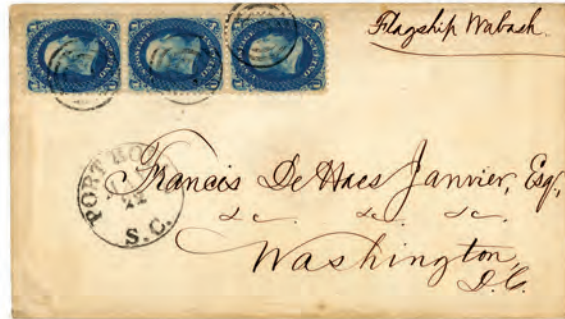 Flagship Wabash.
PORT RO
22
S.C.
Francis De Haes Janvier, Esq.,
&c. &c. &c.
Washington,
D.C.